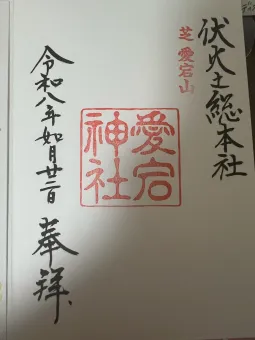 伏火之総本社
芝愛宕山
愛宕
神社
令和八年如月廿二日
奉拝